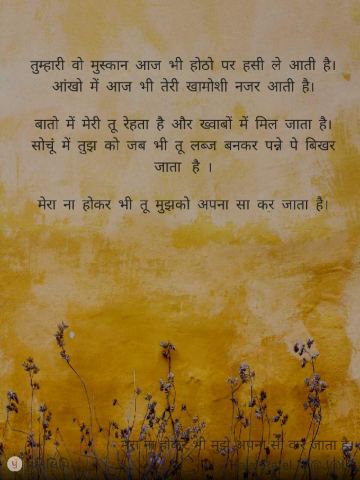 तुम्हारी वो मुस्कान आज भी होठो पर हसी ले आती है।
आंखो में आज भी तेरी खामोशी नजर आती है।
बातो में मेरी तू रेहता है और ख्वाबों में मिल जाता है।
सोचूं में तुझ को जब भी तू लब्ज बनकर पन्ने पे बिखर
जाता है ।
मेरा ना होकर भी तू मुझको अपना सा कर जाता है।
मेरा ना होकर भी मुझे अपना सा कर जाता है।